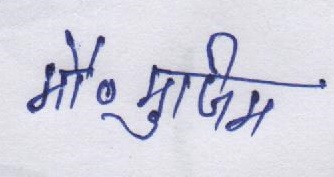 मौ० मुजीम